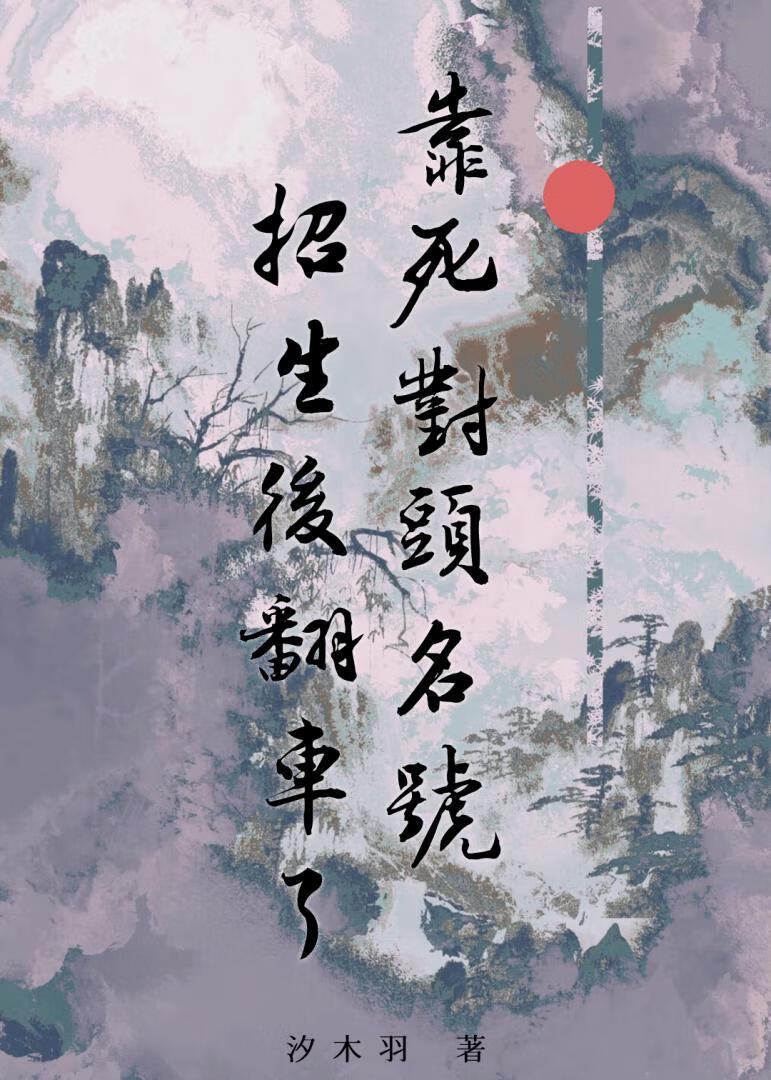 靠死對頭名號
招生後翻車了
汐木羽 著